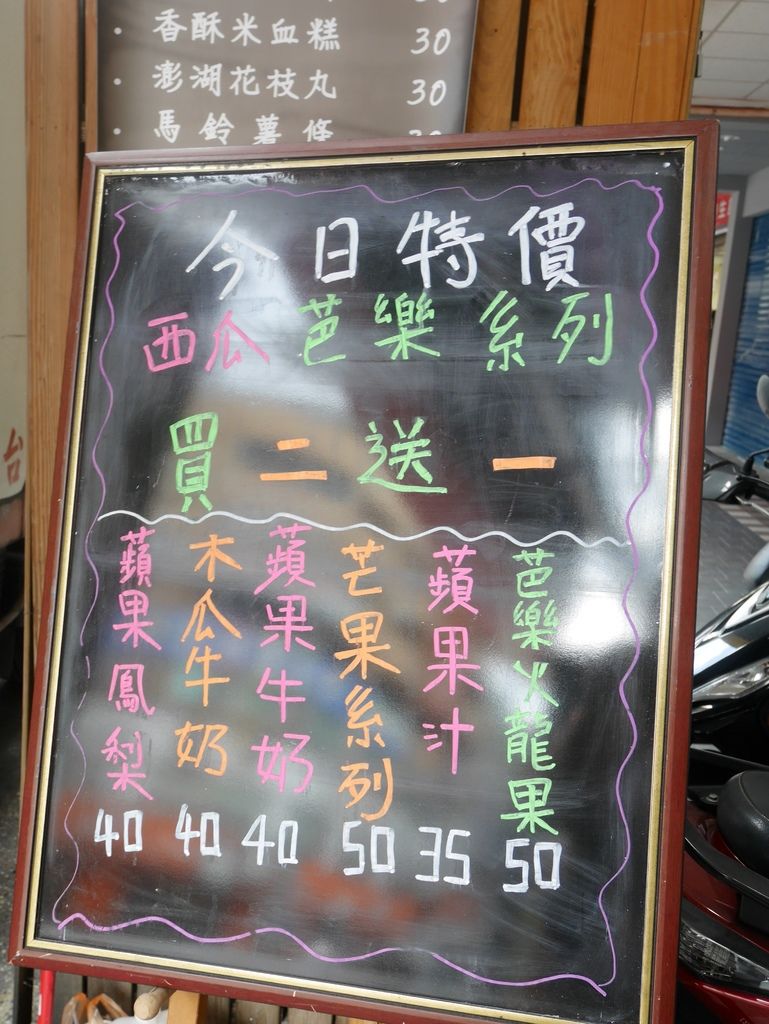 · 香酥米血糕 30
· 澎湖花枝丸 30
· 馬鈴薯條 30
今日特價
西瓜芭樂系列
買二送一
芭樂火龍果 50
蘋果汁 35
芒果系列 50
蘋果牛奶 40
木瓜牛奶 40
蘋果鳳梨 40
台